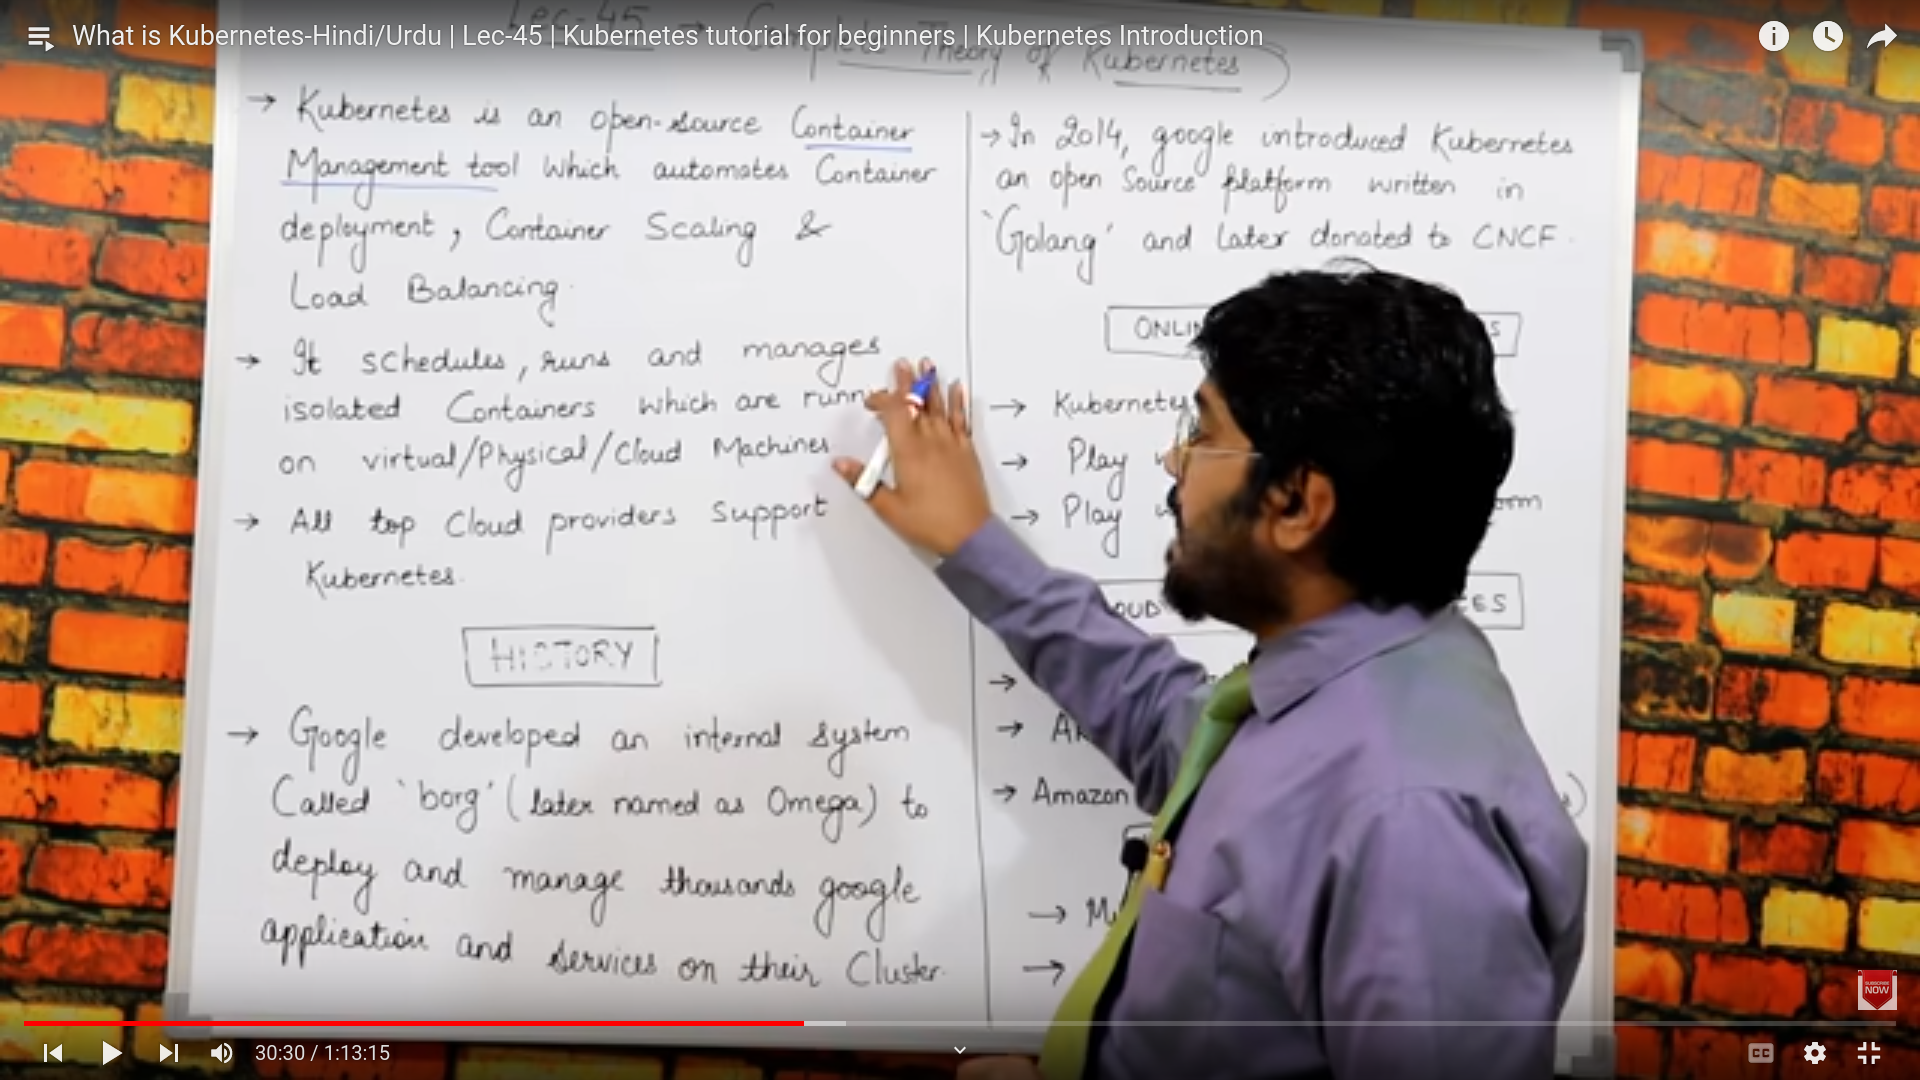 What is Kubernetes-Hindi/Urdu | Lec-45 | Kubernetes tutorial for beginners | Kubernetes Introduction
Lec-45 → Complete Theory of Kubernetes
→ Kubernetes is an open-source Container
Management tool which automates Container
deployment, Container Scaling &
Load Balancing.
→ It schedules, runs and manages
isolated Containers which are runn
on virtual/Physical/Cloud Machines
→ All top Cloud providers support
Kubernetes.
HISTORY
→ Google developed an internal system
Called 'borg' (later named as Omega) to
deploy and manage thousands google
application and services on their Cluster.
→ In 2014, google introduced Kubernetes
an open Source platform written in
'Golang' and later donated to CNCF.
ONLI S
→ Kubernete
→ Play
→ Play orm
OUD ES
→
→
→ Amazon s)
→ M
→
SUBSCRIBE
NOW
30:30 / 1:13:15
CC